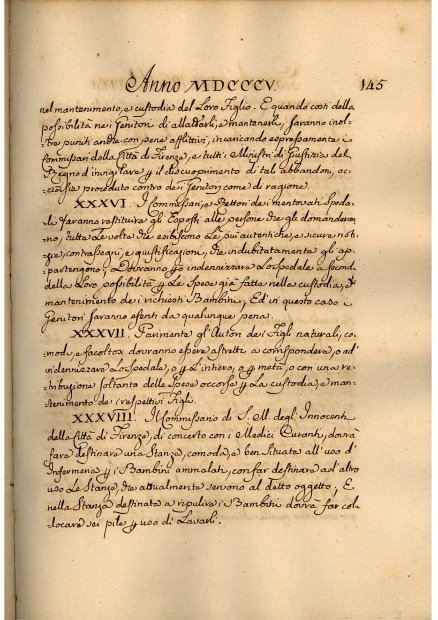 Anno MDCCCV. 145
nel mantenimento, e custodia del Loro Figlio. E quando costi della
possibilità ne i Genitori di allattarli, e mantenerli, saranno inol-
-tre puniti anche con pene afflittive, incaricando espressamente i
Commissari della Città di Firenze, e tutti i Ministri di Giustizia del
Regno d'invigilare p il discuoprimento di tali abbandoni, ac-
-ciò sia proceduto contro de i Genitori come di ragione.
XXXVI. I Commissari, e Rettori de i mentovati Speda-
-li faranno restituire gli Esposti alle persone che gli domanderan-
-no, tutte le volte che esibiscono le più autentiche, e sicure noti-
-zie, contrassegni, e giustificazioni, che indubitatamente gli ap-
partengono; Dovranno p.o indennizzare Lo Spedale a secondo
della Loro possibilità p Le Spese già fatte nella custodia, e
mantenimento de i richiesti Bambini; Ed in questo caso i
Genitori saranno esenti da qualunque pena.
XXXVII. Parimente gli Autori de i Figli naturali, co-
modi, e facoltosi dovranno essere astretti a corrispondere, o ad
indennizzare Lo Spedale, o p L'intiero, o p metà, o con una re-
-tribuzione soltanto delle Spese occorse p La custodia, e man-
-tenimento de i respettivi Figli.
XXXVIII. Il Commissario di S. M. degl' Innocenti
della Città di Firenze, di concerto con i Medici Curanti, dovrà
fare destinare una Stanza, comoda, e ben situata all' uso d'
Infermeria p i Bambini ammalati, con far destinare ad altro
uso Le Stanze, che attualmente servono al detto oggetto; E
nella Stanza destinata a ripulire i Bambini dovrà far col-
-locare sei pile p uso di Lavarli.